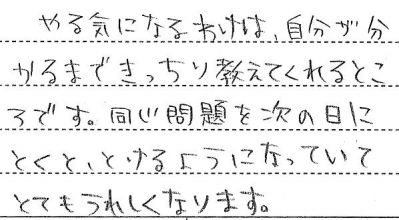 やる気になるわけは、自分が分
かるまできっちり教えてくれるとこ
ろです。同じ問題を次の日に
とくと、とけるようになっていて
とてもうれしくなります。